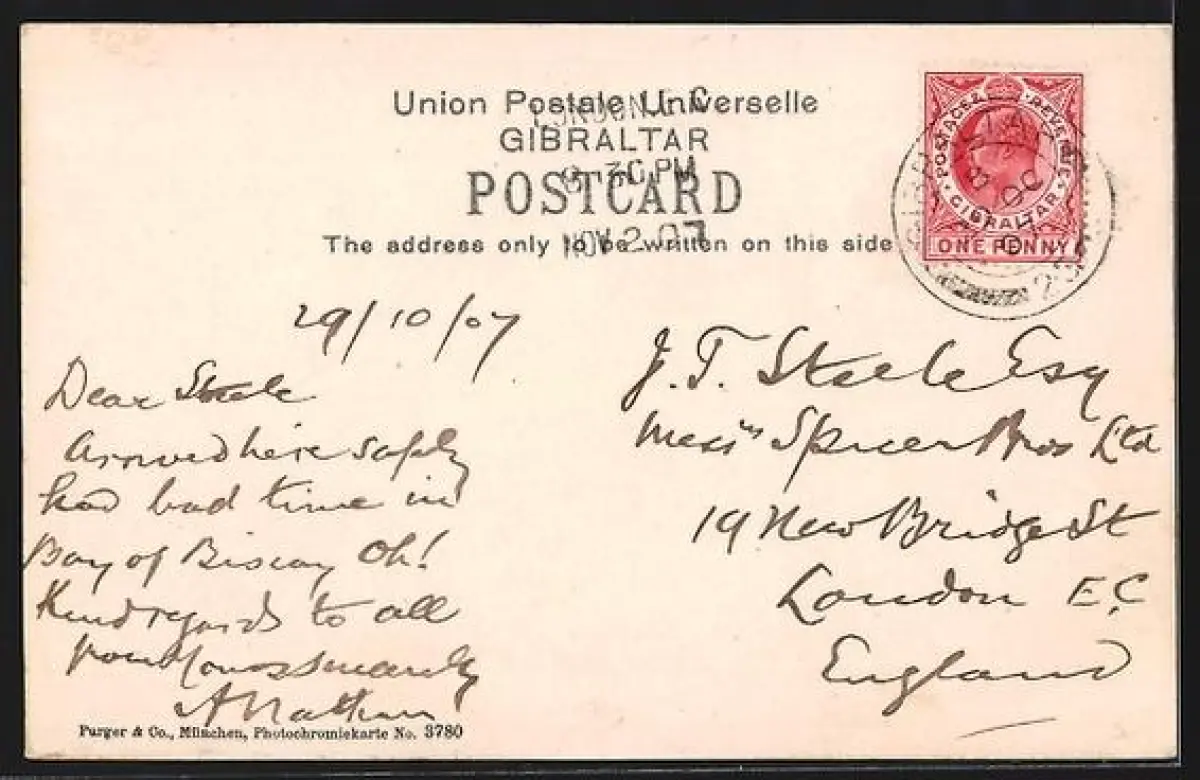 Union Postale Universelle
GIBRALTAR
POSTCARD
The address only to be written on this side
LONDON E.C
8-30 PM
NOV 2 07
POSTAGE & REVENUE
GIBRALTAR
ONE PENNY
29/10/07
Dear Steele
Arrived here safely
had bad time in
Bay of Biscay Oh!
Kind regards to all
from Yours sincerely
A Nathan
J. T. Steele Esq
Messrs Spicer Bros Ltd
19 New Bridge St
London E.C
England
Purger & Co., München, Photochromiekarte No. 3780